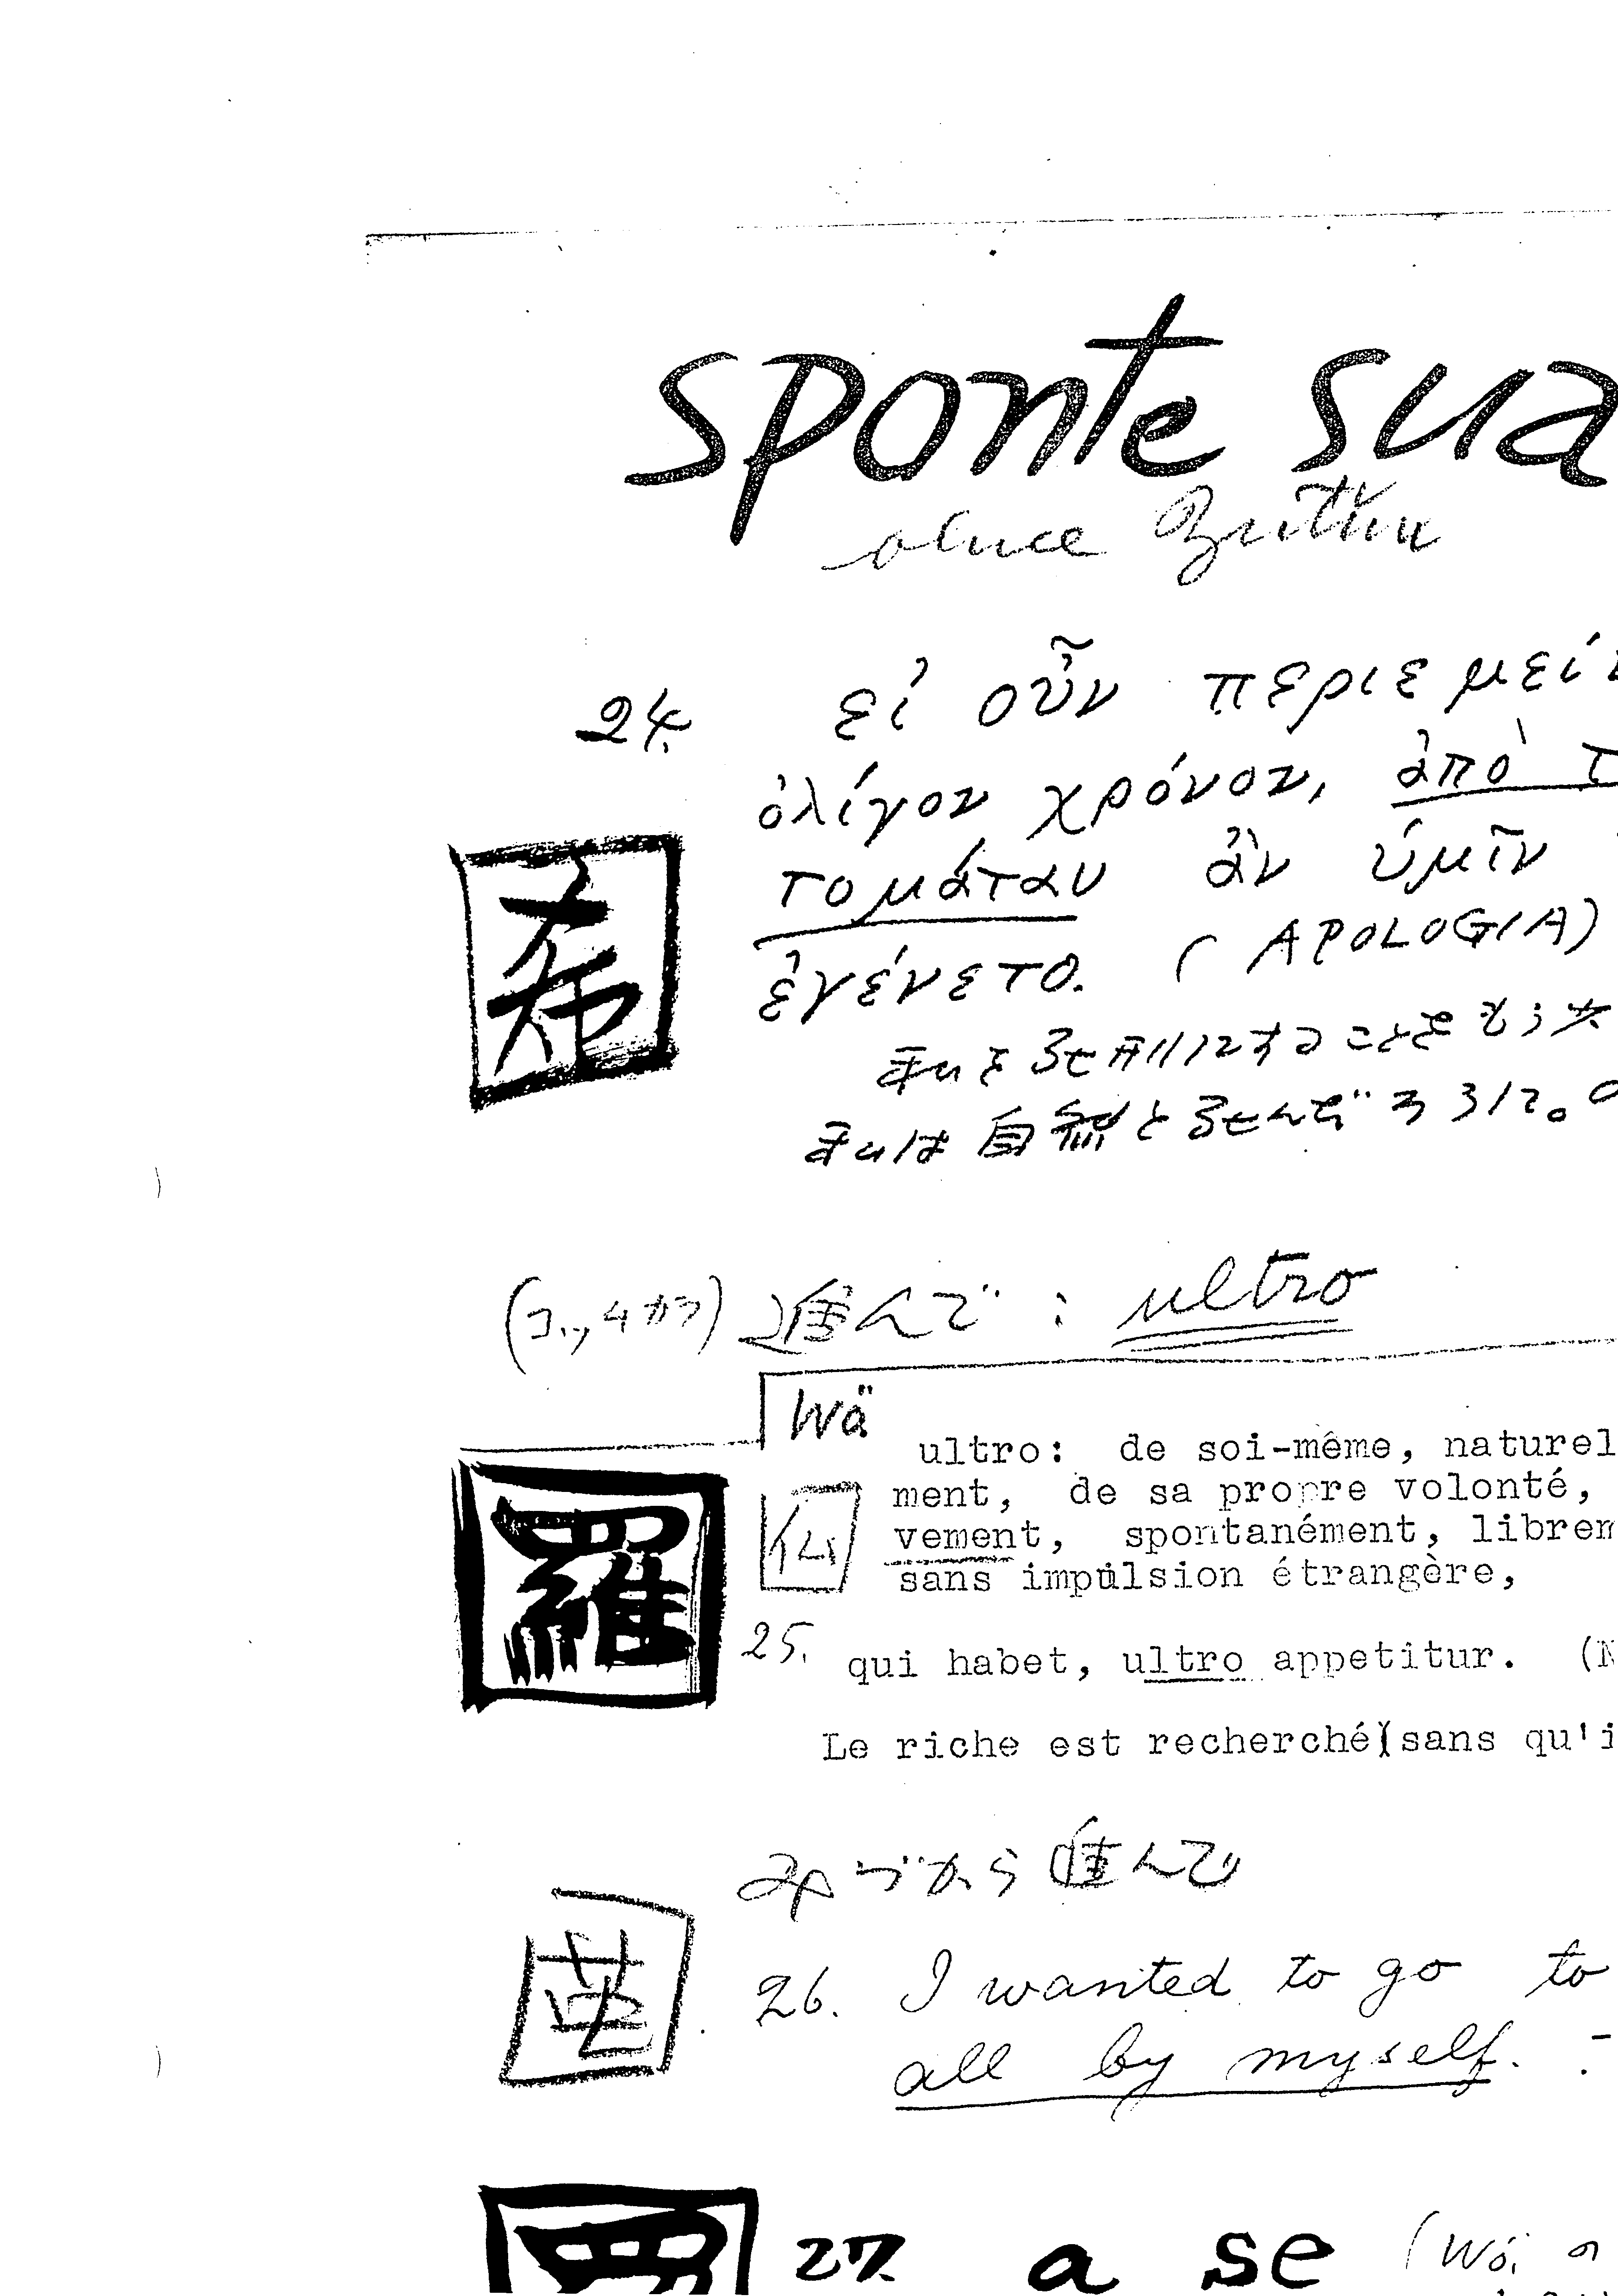 sponte sua
24. εἰ οὖν περιεμεί
ὀλίγον χρόνον, ἀπὸ τ
希
τομάτου ἂν ὑμῖν
ἐγένετο. (APOLOGIA)
死刑にすることを
自然と死んだろうに。
進んで : ultro
Wö
ultro: de soi-même, naturel
ment, de sa propre volonté,
仏
vement, spontanément, librem
羅
sans impulsion étrangère,
25. qui habet, ultro appetitur. (N
Le riche est recherché(sans qu'i
みづから進んで
英
26. I wanted to go to
all by myself.
27. a se (Wö.